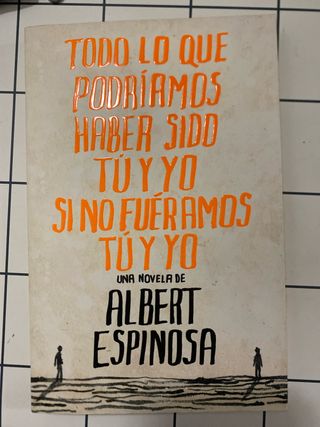 TODO LO QUE
PODRÍAMOS
HABER SIDO
TÚ Y YO
SI NO FUÉRAMOS
TÚ Y YO
UNA NOVELA DE
ALBERT
ESPINOSA